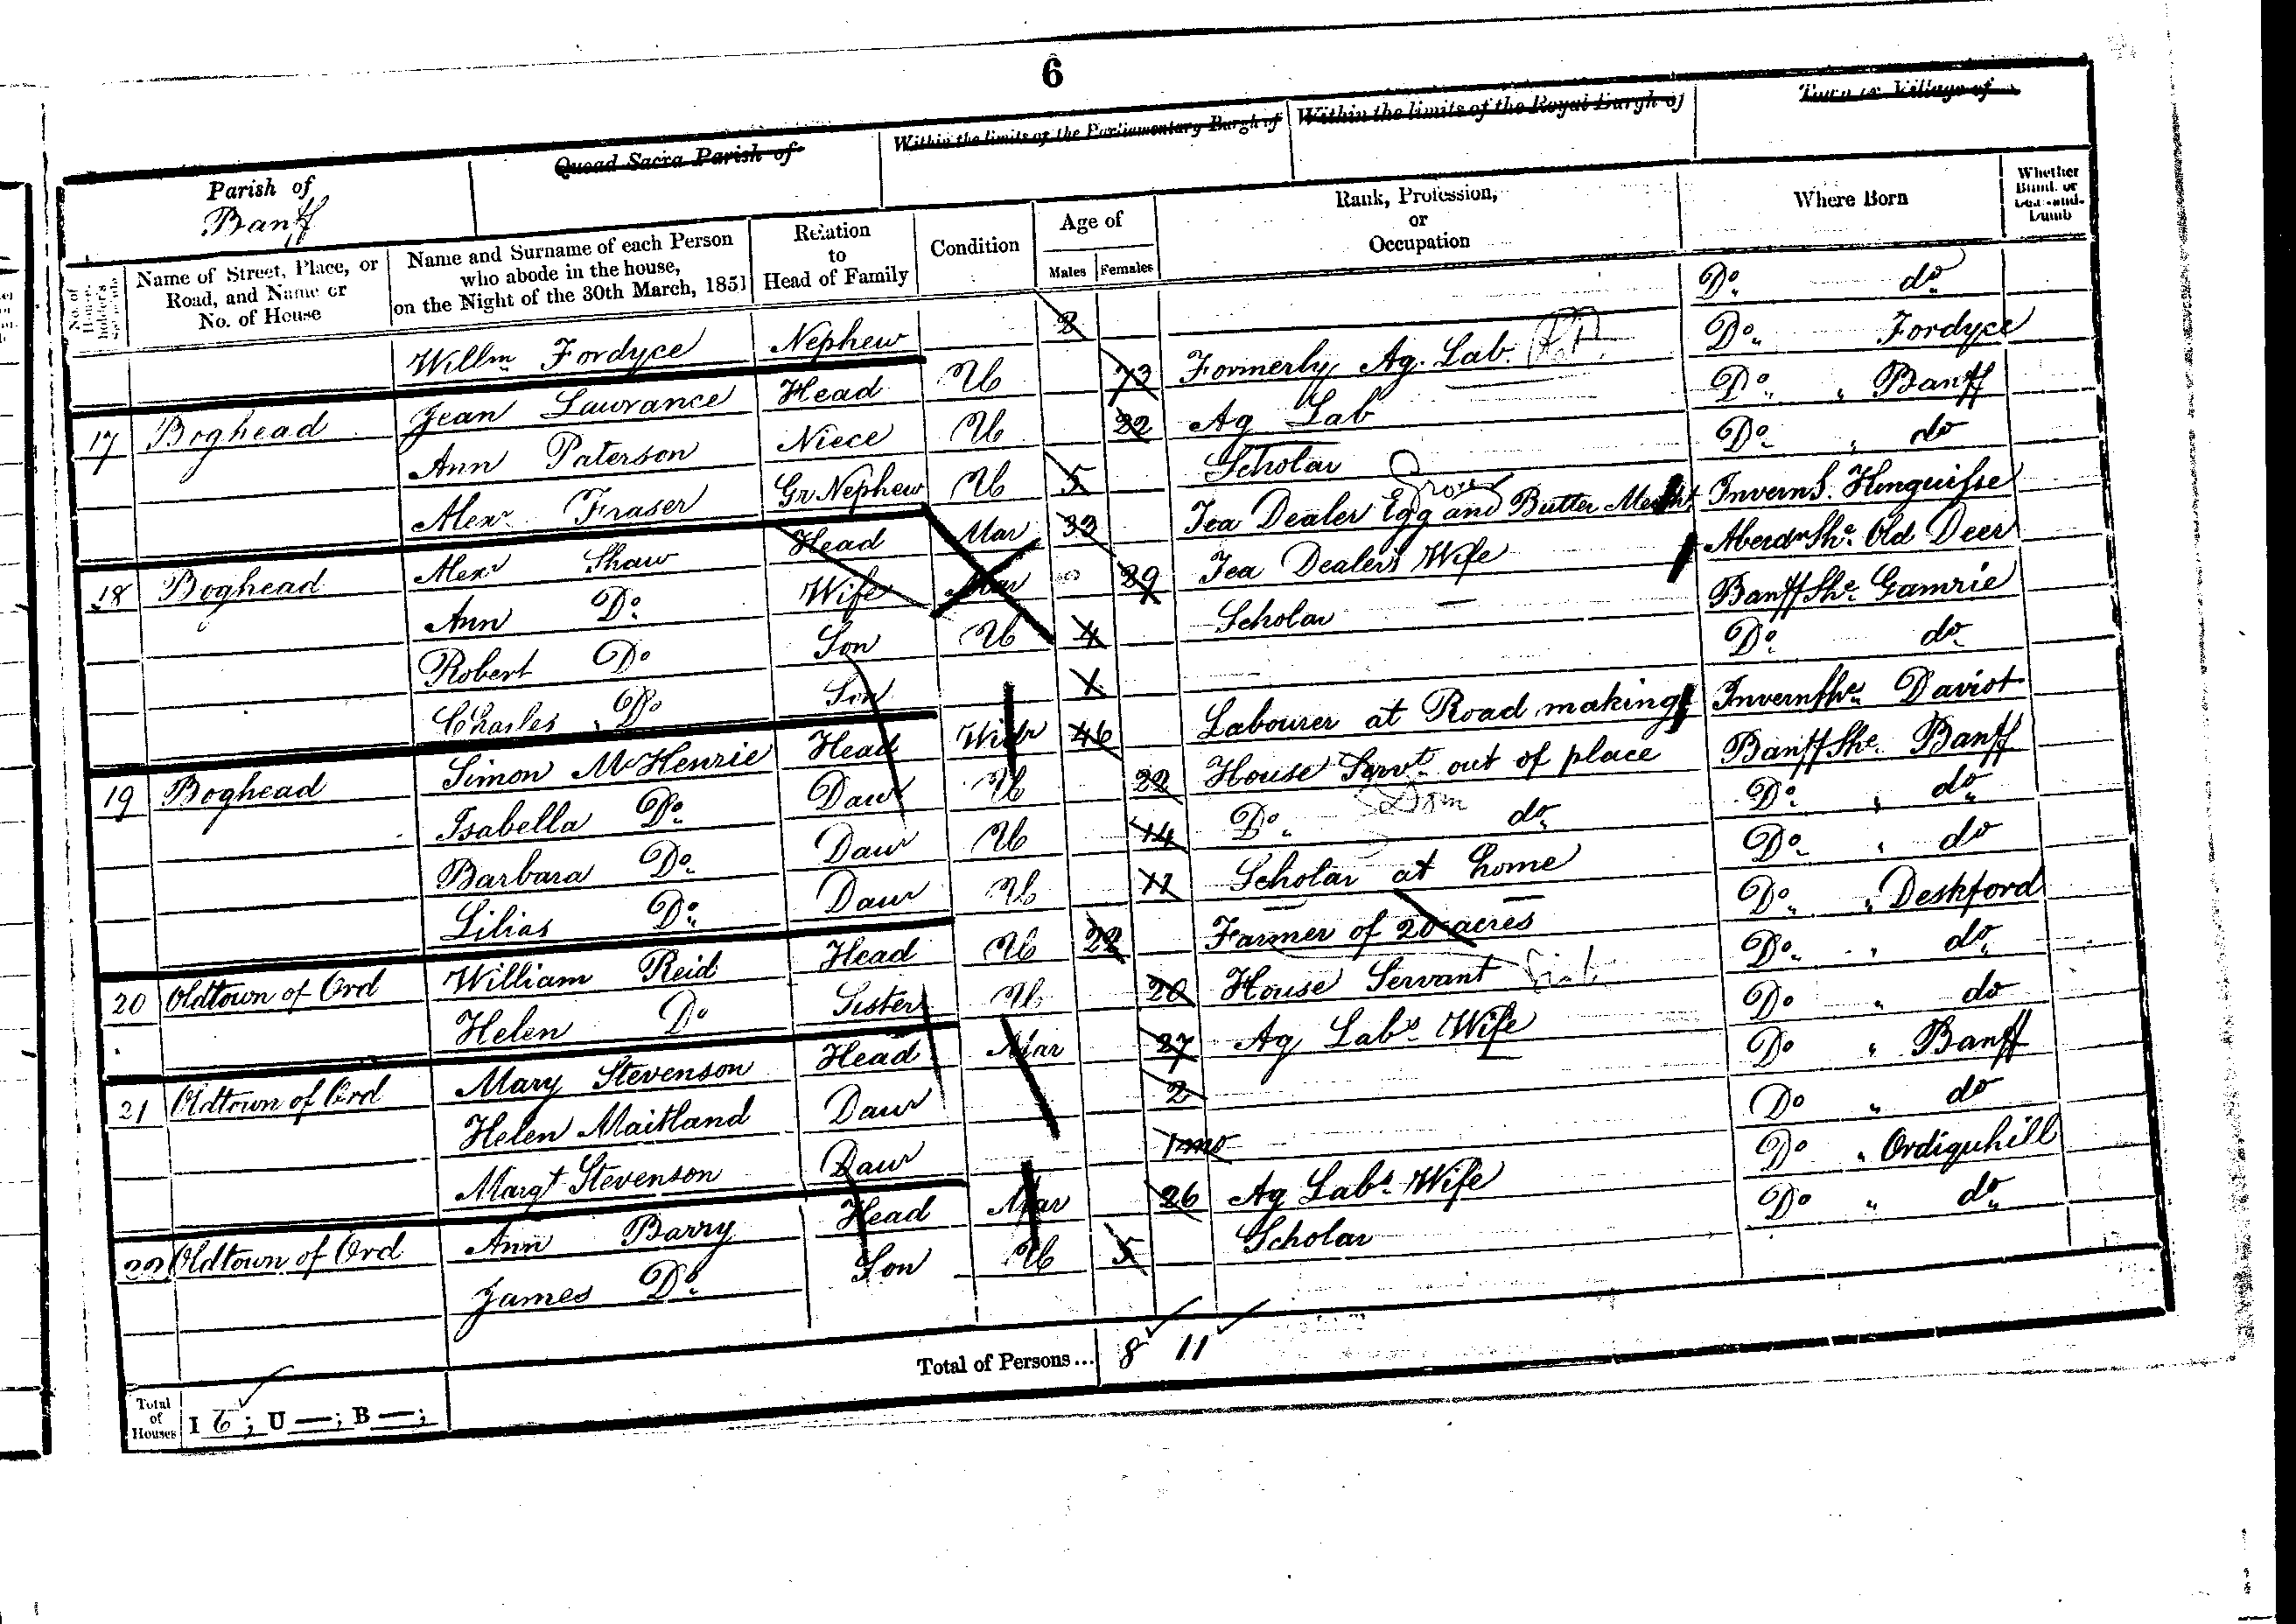 6
Parish of Banff
Quoad Sacra Parish of
Within the limits of the Parliamentary Burgh of
Within the limits of the Royal Burgh of
Town or Village of
No. of House-holder's Schedule
Name of Street, Place, or Road, and Name or No. of House
Name and Surname of each Person who abode in the house, on the Night of the 30th March, 1851
Relation to Head of Family
Condition
Age of
Males Females
Rank, Profession, or Occupation
Where Born
Whether Blind, or Deaf-and-Dumb
Willm Fordyce Nephew 2 Do. do.
17 Boghead Jean Lawrance Head U 73 Formerly Ag. Lab. Do. Fordyce
Ann Paterson Niece U 22 Ag Lab Do. " Banff
Alexr Fraser Gr Nephew U 5 Scholar Do. " do
18 Boghead Alexr Shaw Head Mar 33 Tea Dealer Egg and Butter Mercht Grocer InvernS.
Ann Do. Wife Mar 29 Tea Dealers Wife AberdnShe. Old Deer
Robert Do Son U 4 Scholar BanffShe. Gamrie
Charles Do Son 1 Do. do.
19 Boghead Simon McKenzie Head Widr 46 Labourer at Road making InvernShe. Daviot
Isabella Do. Daur U 22 House Servt. out of place Dom BanffShe. Banff
Barbara Do. Daur U 14 Do. do. Do. " do.
Lilias Do. Daur U 11 Scholar at home Do. " do
20 Oldtown of Ord William Reid Head U 22 Farmer of 20 acres Do. " Deskford
Helen Do Sister U 20 House Servant Do. " do.
21 Oldtown of Ord Mary Stevenson Head Mar 27 Ag Labs. Wife Do " do
Helen Maitland Daur 2 Do " Banff
Margt Stevenson Daur 1 mo Do " do
22 Oldtown of Ord Ann Barry Head Mar 26 Ag Labs. Wife Do " Ordiquhill
James Do. Son U 5 Scholar Do " do.
Total of Persons... 8 11
Total of Houses I 6; U —; B —;